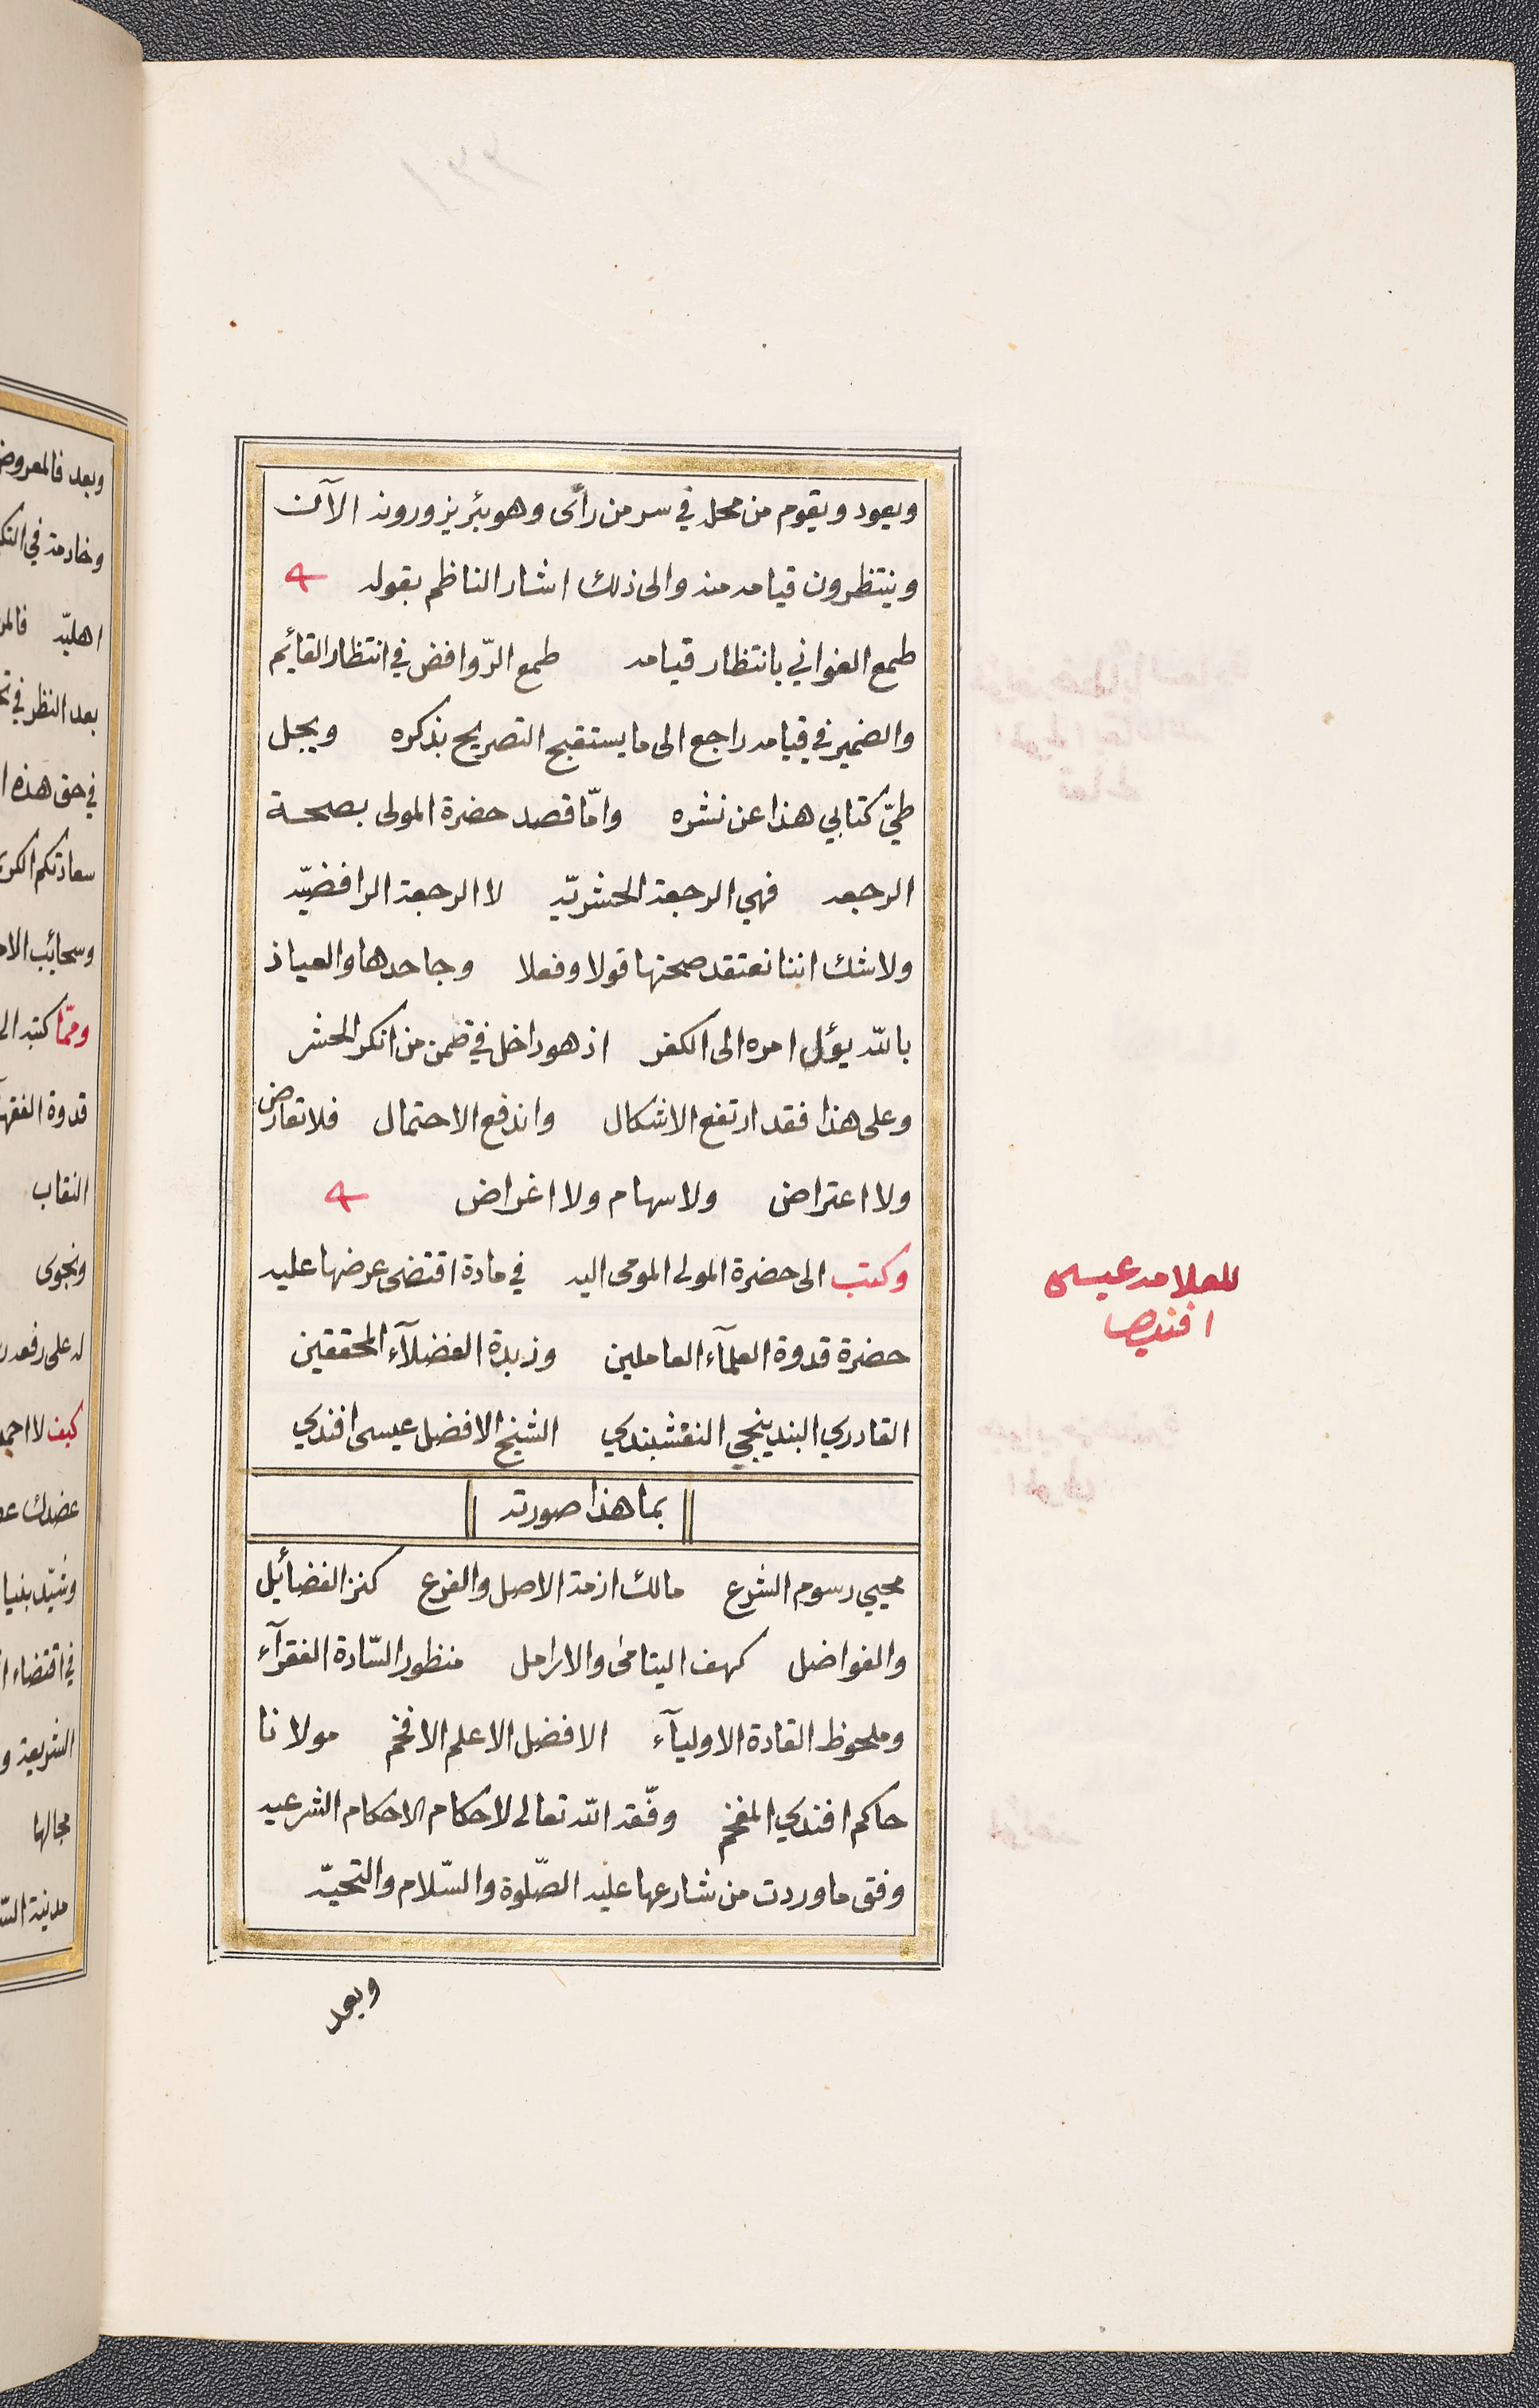 ويعود ويقوم من محل في سر من رأى وهو بئر يزورونه الآن
وينتظرون قيامه منه والى ذلك اشار الناظم بقوله
طمع الغواني بانتظار قيامه طمع الرّوافض في انتظار القائم
والضمير في قيامه راجع الى ما يستقبح التصريح بذكره ويجل
طيّ كتابي هذا عن نشره وامّا قصد حضرة المولى بصحة
الرجعه فهي الرجعة الحشريّه لا الرجعة الرافضيّه
ولا شك اننا نعتقد صحتها قولا وفعلا وجاحدها والعياذ
بالله يؤل امره الى الكفر اذ هو داخل في ضمن من انكر الحشر
وعلى هذا فقد ارتفع الاشكال واندفع الاحتمال فلا تعارض
ولا اعتراض ولا سهام ولا اغراض
وكتب الى حضرة المولى المومى اليه في مادة اقتضى عرضها عليه
للعلامه عيسى
افندي
حضرة قدوة العلمآء العاملين وزبدة الفضلآء المحققين
القادري البندينجي النقشبندي الشيخ الافضل عيسى افندي
بما هذا صورته
محيي رسوم الشرع مالك ازمة الاصل والفرع كنز الفضائل
والفواضل كهف اليتامى والارامل منظور السّادة الفقرآء
وملحوظ القادة الاوليآء الافضل الاعلم الافخم مولانا
حاكم افندي المفخم وفّقه الله تعالى لاحكام الاحكام الشرعيه
وفق ما وردت من شارعها عليه الصّلوة والسّلام والتحيّه
وبعد